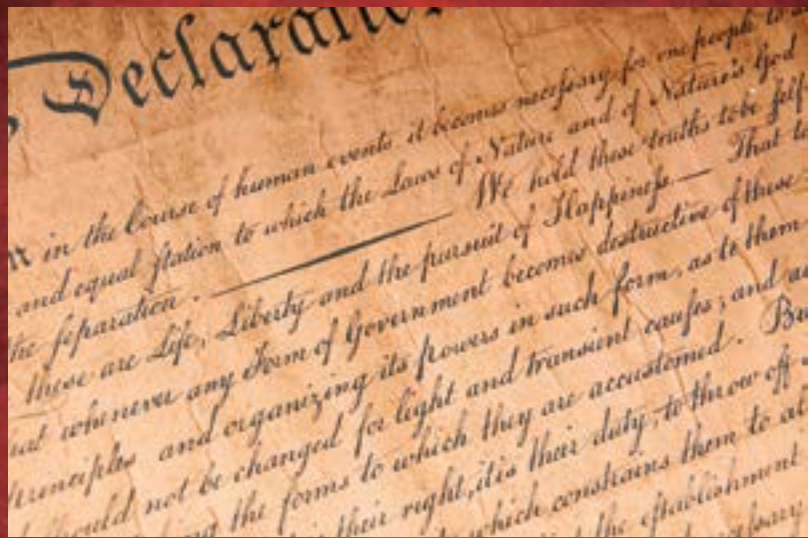 Declaration
in the Course of human events, it becomes necessary for one people to
and equal station to which the Laws of Nature and of Nature's God
the separation. — We hold these truths to be self
these are Life, Liberty and the pursuit of Happiness. — That to
whenever any Form of Government becomes destructive of these
principles and organizing its powers in such form, as to them
should not be changed for light and transient causes; and
the forms to which they are accustomed. Bu
their right, it is their duty, to throw off
which constrains them to
the establishment